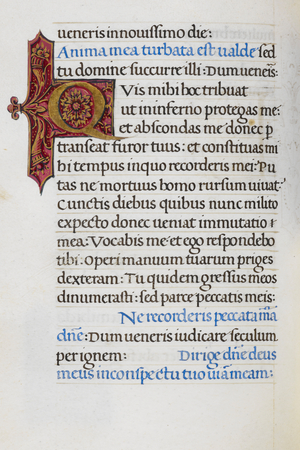 ueneris in nouissimo die:
Anima mea turbata est ualde sed
tu domine succurre illi: Dum ueneris:
Quis mihi hoc tribuat
ut in inferno protegas me:
et abscondas me donec p
transeat furor tuus: et constituas mi
hi tempus in quo recorderis mei: Pu
tas ne mortuus homo rursum uiuat:
Cunctis diebus quibus nunc milito
expecto donec ueniat immutatio
mea: Vocabis me: et ego respondebo
tibi: Operi manuum tuarum priges
dexteram: Tu quidem gressus meos
dinumerasti: sed parce peccatis meis:
Ne recorderis peccata mea
dñe: Dum ueneris iudicare seculum
per ignem: Dirige dñe deus
meus in conspectu tuo uiam meam: